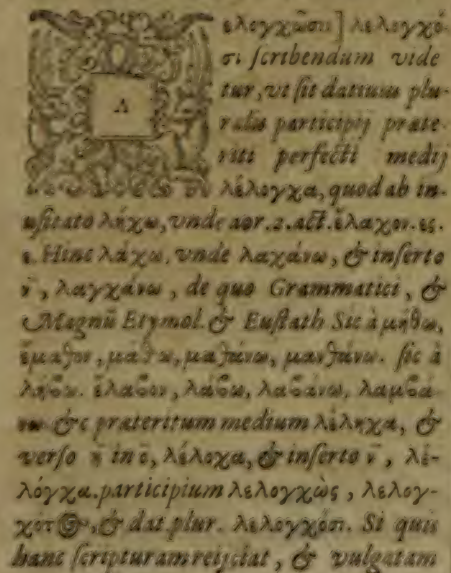 Λ
ελογχῶσι] λελογχό-
σι scribendum vide
tur, vt sit datiuus plu-
ralis participij præte-
riti perfecti medij
λέλογχα, quod ab in-
usitato λήχω, vnde aor. 2. act. ἔλαχον. ες.
ε. Hinc λάχω, vnde λαχάνω, & inserto
ν̄, λαγχάνω, de quo Grammatici, &
Magnū Etymol. & Eustath Sic à μήθω,
ἔμαθον, μάθω, μαθάνω, μανθάνω. sic à
λήβω. ἔλαβον, λάβω, λαβάνω, λαμβά-
νω &c præteritum medium λέληχα, &
verso η̄ in ο̄, λέλοχα, & inserto ν̄, λέ-
λόγχα. participium λελογχὼς, λελογ-
χότος, & dat. plur. λελογχόσι. Si quis
hanc scripturam reijciat, & vulgatam